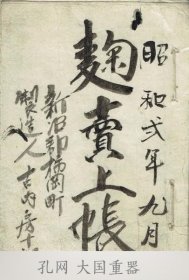 昭和弐年九月
麹賣上帳
新治郡柿岡町
製造人
孔网 大国重器